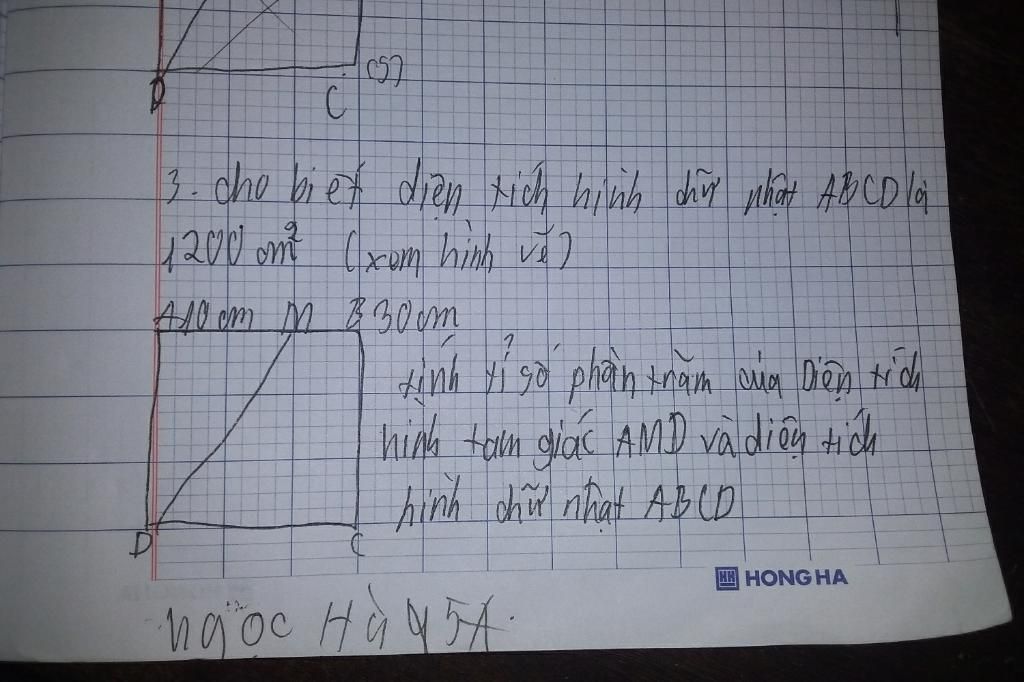 D
C (5)
3. cho biết diện tích hình chữ nhật ABCD là
1200 cm² (xem hình vẽ)
A 10cm M B 30cm
tính tỉ số phần trăm của Diện tích
hình tam giác AMD và diện tích
hình chữ nhật ABCD
D C
HONG HA
Ngọc Hà 5A.